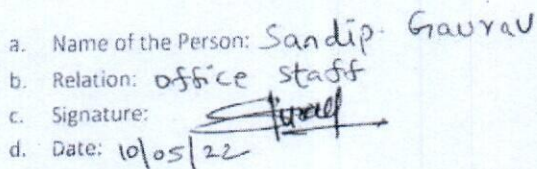 a. Name of the Person: Sandip Gaurav
b. Relation: office staff
c. Signature:
d. Date: 10/05/22